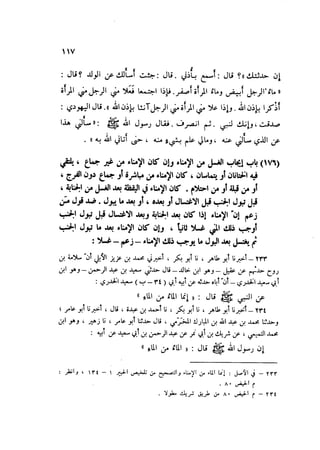 ١١٧
إن حدثتك ؟ قال : أسمع بأذني . قال : جئت أسألك عن الولد ؟ قال :
« ماء الرجل أبيض وماء المرأة أصفر . فإذا اجتمعا فعلا مني الرجل مني المرأة
أذكرا بإذن الله . وإن علا مني المرأة مني الرجل آنثا بإذن الله » . قال اليهودي :
صدقت ، وإنك لنبي . ثم انصرف . فقال رسول الله ﷺ : « سألني هذا
عن الذي سألني عنه ، ومالي علم بشيء منه ، حتى أتاني الله به » .
(١٧٦) باب إيجاب الغسل من الإمناء وإن كان الإمناء من غير جماع ، يلتقي
فيه الختانان أو يتماسان ، كان الإمناء من مباشرة أو جماع دون الفرج ،
أو من قبلة أو من احتلام . كان الإمناء في اليقظة بعد الغسل من الجنابة ،
قبل تبول الجنب قبل الاغتسال أو بعده ، أو بعد ما يبول . ضد قول من
زعم إن الإمناء إذا كان بعد الجنابة وبعد الاغتسال قبل تبول الجنب
أوجب ذلك المني غسلا ثانيا ، وإن كان الإمناء بعد ما تبول الجنب
ثم يغتسل بعد البول ما يوجب ذلك الإمناء – زعم – غسلا :
٢٣٣ – أخبرنا أبو طاهر ، نا أبو بكر ، أخبرني محمد بن عزيز الأيلي أن سلامة بن
روح حدثهم عن عقيل – وهو ابن خالد – قال حدثني سعيد بن عبد الرحمن – وهو ابن
أبي سعيد الخدري – أن أباه حدثه عن أبيه أبي (٣٤ – ب) سعيد الخدري :
عن النبي ﷺ قال : « إنما الماء من الماء »
٢٣٤ – أخبرنا أبو طاهر ، نا أبو بكر ، نا أحمد بن عبدة ، قال ، أخبرنا أبو عامر ؛
وحدثنا محمد بن عبد الله بن المبارك المخرمي ، قال حدثنا أبو عامر ، نا زهير ، وهو ابن
محمد التميمي ، عن شريك بن أبي نمر عن عبد الرحمن بن أبي سعيد عن أبيه :
إن رسول الله ﷺ قال : « الماء من الماء »
٢٣٣ – في الأصل : إنما الماء من الإمناء والتصحيح من تلخيص الحبير ١ – ١٣٤ ؛ وانظر :
م الحيض ٨٠ .
٢٣٤ – م الحيض ٨٠ من طريق شريك مطولا .